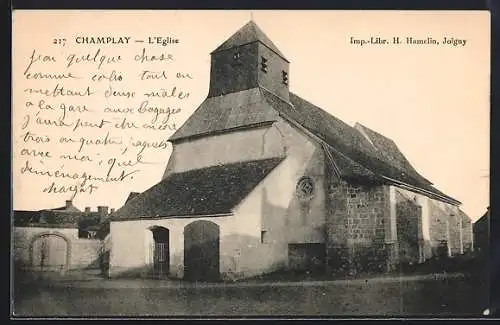 217 CHAMPLAY — L'Eglise
Imp.-Libr. H. Hamelin, Joigny
j'ai quelque chose
comme colis tout en
mettant deux malles
a la gare aux bagages
j'aurai peut être encore
trois ou quatre paquets
avec moi, quel
déménagement